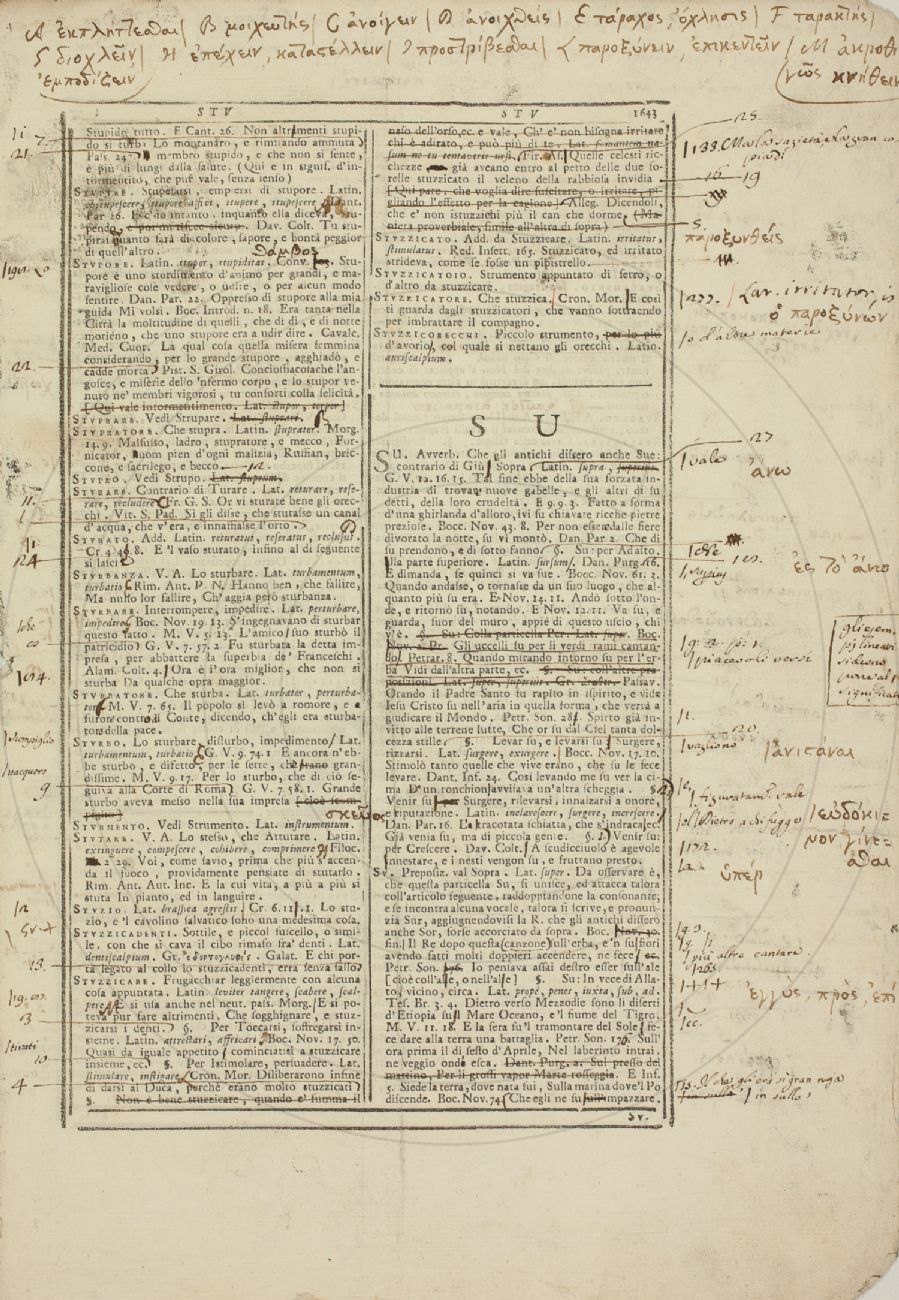 A ἐκπλήττεσθαι | B μοιχευτής | C ἀνοίγειν | D ἀνοιχθείς | E τάραχος, ὄχλησις | F ταρακτής |
G διοχλεῖν | H ἐπέχειν, | προστρίβεσθαι | L παροξύνειν, ἐπικεντεῖν / M ἀκροθι
ἐμποδίζειν
γῶς κνήθειν
STV
STV 1643
Stupido tutto. F Cant. 26. Non altrimenti stupi-
do si turb: Lo montanaro, e rimirando ammuta
Pass. 24 membro stupido, e che non si sente,
e più di lungi dalla salute. (Qui e in signif. d'in-
tormentito, che piè vale, senza senso)
STVPIRE. Stupefarsi, empiersi di stupore. Latin.
obstupescere, stupore affici, stupere, stupescere Dant.
Par 26. Ecc' io intanto. inquanto ella diceva, stu-
pendo, e por mi risece sicuro. Dav. Colt. Tu stu-
pirai quanto sarà di colore, sapore, e bontà peggior
di quell'altro. θάμβος
STVPORE. Latin. stupor, stupiditas. Conv. Stu-
pore è uno stordimento d'animo per grandi, e ma-
ravigliose cose vedere, o udire, o per alcun modo
sentire. Dan. Par. 22. Oppresso di stupore alla mia
guida Mi volsi. Boc. Introd. n. 18. Era tanta nella
Città la moltitudine di quelli, che di dì, e di notte
moriéno, che uno stupore era ndir dire. Cavalc.
Med. Cuor. La qual cosa quella misera femmina
considerando, per lo grande stupore, agghiadò, e
cadde morta Pist. S. Girol. Conciossiacosachè l'an-
gosce, e miserie dello 'nfermo corpo, e lo stupor ve-
nuto ne' membri vigorosi, tu conforti colla felicità.
[Qui vale intormentimento. Lat. stupor, torpor]
STVPRARE. Vedi Strupare. Lat. stuprari.
STVPRATORE. Che stupra. Latin. stuprator. Morg.
14. 9. Malfusso, ladro, stupratore, e mecco, For-
nicator, huom pien d'ogni malizia, Ruffian, bric-
cone, e sacrilego, e becco
STVPRO. Vedi Strupo. Lat. stuprum.
STVRARE. Contrario di Turare. Lat. returare, rese-
rare, recludere Fr. G. S. Or vi sturate bene gli orec-
chi. Vit. S. Pad. Sì gli disse, che sturasse un canal
d'acqua, che v'era, e innaffiasse l'orto.
STVRATO. Add. Latin. returatus, reseratus, reclusus.
Cr. 4. 48. 8. E 'l vaso sturato, infino al dì seguente
si lasci
STVRBANZA. V. A. Lo sturbare. Lat. turbamentum,
turbatio Rim. Ant. P. N. Hanno ben, che fallire,
Ma nullo lor fallire, Ch'aggia però sturbanza.
STVRBARE. Interrompere, impedire. Lat. perturbare,
impedire Boc. Nov. 19. 13. S'ingegnavano di sturbar
questo fatto. M. V. 5. 13. L'amico suo sturbò il
patricidio G. V. 7. 57. 2 Fu sturbata la detta im-
presa, per abbattere la superbia de' Franceschi.
Alam. Colt. 4. Ora è l'ora miglior, che non si
sturba Da qualche opra maggior.
STVRBATORE. Che sturba. Lat. turbator, perturba-
tor M. V. 7. 65. Il popolo si levò a romore, e a
furore contro il Conte, dicendo, ch'egli era sturba-
tor della pace.
STVRBO. Lo sturbare, disturbo, impedimento Lat.
turbamentum, turbatio G. V. 9. 74. 1 E ancora n'eb-
be sturbo, e difetto, per le sette, che erano gran-
dissime. M. V. 9. 17. Per lo sturbo, che di ciò se-
guiva alla Corte di Roma G. V. 7. 58. 1. Grande
sturbo aveva messo nella sua impresa [cioè scom-
piglio] σκεῦος
STVRMENTO. Vedi Strumento. Lat. instrumentum.
STVTARE. V. A. Lo stesso, che Attutare. Latin.
extinguere, compescere, cohibere, comprimere Filoc.
2 29. Voi, come savio, prima che più s'accen-
da il fuoco, providamente pensate di stutarlo.
Rim. Ant. Aut. Inc. E la cui vita, a più a più si
stuta In pianto, ed in languire.
STVZIO. Lat. brassica agrestis. Cr. 6. 11. 1. Lo stu-
zio, e 'l cavolino salvatico sono una medesima cosa.
STVZZICADENTI. Sottile, e piccol fuscello, o simi-
le, con che si cava il cibo rimaso fra' denti. Lat.
dentiscalpium. Gr. ὀδοντογλυφίς. Galat. E chi por-
ta legato al collo lo stuzzicadenti, erra senza fallo
STVZZICARE. Frugacchiar leggiermente con alcuna
cosa appuntata. Latin. leviter tangere, scabere, scal-
pere E si usa anche nel neut. pass. Morg. E si po-
teva pur fare altrimenti. Che sogghignare, e stuz-
zicarsi i denti. §. Per Toccarsi, soffregarsi in-
sieme. Latin. attrectari, affricari Boc. Nov. 17. 50.
Quasi da iguale appetito cominciatisi a stuzzicare
insieme, ec. §. Per Istimolare, persuadere. Lat.
stimulare, instigare Cron. Mor. Diliberarono infine
di darsi a Duca, perchè erano molto stuzzicati
§. Non è bene stuzzicare, quando e' fumma il
naso dell'orso, ec. e vale, Ch' e' non bisogna irritare
chi è adirato, e può più di te. Lat. fumantem na-
sum ne tu tentaveris ursi. Fir. As. Quelle celesti ric-
chezze già avcano entro al petto delle due so-
relle stuzzicato il veleno della rabbiosa invidia
[Qui pare, che voglia dire suscitare, o irritare, pi-
gliando l'effetto per la cagione] Alleg. Dicendoli,
che e' non istuzzichi più il can che dorme (Ma-
niera proverbiale, simile all'altra di sopra)
STVZZICATO. Add. da Stuzzicare. Latin. irritatus,
stimulatus. Red. Insett. 165. Stuzzicato, ed irritato
strideva, come se fosse un pipistrello.
STVZZICATOIO. Strumento appuntato di ferro, o
d'altro da stuzzicare.
STVZZICATORE. Che stuzzica. Cron. Mor. E così
ti guarda dagli stuzzicatori, che vanno sottraendo
per imbrattare il compagno.
STVZZICORECCHI. Piccolo strumento, per lo più
d'avorio, col quale si nettano gli orecchi. Latin.
auriscalpium.
SU
SU. Avverb. Che gli antichi dissero anche Sue:
contrario di Giù Sopra Latin. supra, superius.
G. V. 12. 16. 15. Tal fine ebbe della sua forzata in-
dustria di trovar nuove gabelle, e gli altri di su
detti, della loro crudeltà. E 9. 9. 3. Fatto a forma
d'una ghirlanda d'alloro, ivi su chiavare ricche pietre
preziose. Bocc. Nov. 43. 8. Per non esser dalle fiere
divorato la notte, su vi montò. Dan Par 2. Che di
su prendono, e di sotto fanno §. Su: per Ad alto.
Alla parte superiore. Latin. sursum. Dan. Purg. 16.
E dimanda, se quinci si va sue. Bocc. Nov. 61. 3.
Quando andasse, o tornasse da un suo luogo, che al-
quanto più su era. E Nov. 14. 11. Andò sotto l'on-
de, e ritornò su, notando. E Nov. 12. 11. Va su, e
guarda, fuor del muro, appiè di questo uscio, chi
v'è. §. Su: Colla particella Per. Lat. super. Boc.
Nov. 2. Pr. Gli uccelli su per li verdi rami cantan-
do. Petrar. 8. Quando mirando intorno su per l'er-
ba Vidi dall'altra parte, ec. §. Su: coll'altre pre-
posizioni. Lat. super, superius. Passav.
Orando il Padre Santo fu rapito in ispirito, e vide
Iesu Cristo su nell'aria in quella forma, che verrà a
giudicare il Mondo. Petr. Son. 281. Spirto già in-
vitto alle terrene lutte, Che or su dal Ciel tanta dol-
cezza stille §. Levar su, e levarsi su Surgere,
rizzarsi. Lat. surgere, exurgere. Bocc. Nov. 17. 10.
Stimolò tanto quelle che vive erano, che su le fece
levare. Dant. Inf. 24. Così levando me su ver la ci-
ma D'un ronchion, avvisava un'altra scheggia. §.
Venir su per Surgere, rilevarsi, innalzarsi a onore,
e riputazione. Latin. inclarescere, surgere, increscere.
Dan. Par. 16. L'arracotata schiatta, che s'indraca, ec.
Già venia su, ma di piccola gente. §. Venir su: per
per Crescere. Dav. Colt. A scudicciuolo è agevole
innestare, e i nesti vengon su, e fruttano presto.
SU. Preposiz. val Sopra. Lat. super. Da osservare è,
che questa particella Su, si unisce, ed attacca talora
coll'articolo seguente, raddoppiandone la consonante,
e se incontra alcuna vocale, talora si scrive, e pronun-
zia Sur, aggiugnendovisi la R. che gli antichi dissero
anche Sor, forse accorciato da sopra. Boc. Nov. 10.
fin. Il Re dopo questa canzone sull'erba, e 'n su' fiori
avendo fatti molti doppieri accendere, ne fece ec.
Petr. Son. 176. Io pensava assai destro esser sull'ale
[cioè coll'ale, o nell'ale] §. Su: In vece di Alla-
to, vicino, circa. Lat. propè, penes, iuxta, sub, ad.
Tes. Br. 3. 4. Dietro verso Mezzodie sono li diserti
d'Etiopia sul Mare Oceano, e 'l fiume del Tigro.
M. V. 11. 18. E la sera su 'l tramontare del Sole fe-
ce dare alla terra una battaglia. Petr. Son. 176. Sull'
ora prima il dì sesto d'Aprile, Nel laberinto intrai.
ne veggio ond' esca. Dant. Purg. 2. Sul presso del
mattino, Per li grossi vapor Marte rosseggia. E Inf.
5. Siede la terra, dove nata fui, Sulla marina dove 'l Po
discende. Boc. Nov. 74. Che egli ne fu sull'impazzare.
Sv.
25.
19
παροξυνθείς
277. / Lat. irritator,
ὁ παροξύνων
o d'altra materia
27
vale
ἄνω
ἐς τὸ ἄνω
piacevoli versi
20.
vagliono
ἀνιστάναι
figuratam. vale
εὐδόκι-
μον γίνε-
σθαι
172.
ὑπέρ
più altre cantare
ἐγγύς, πρός, ἐπί
in sullo
21.
22.
11.
124
104.
Scompiglio
nacquero
9
13.
63
10
4